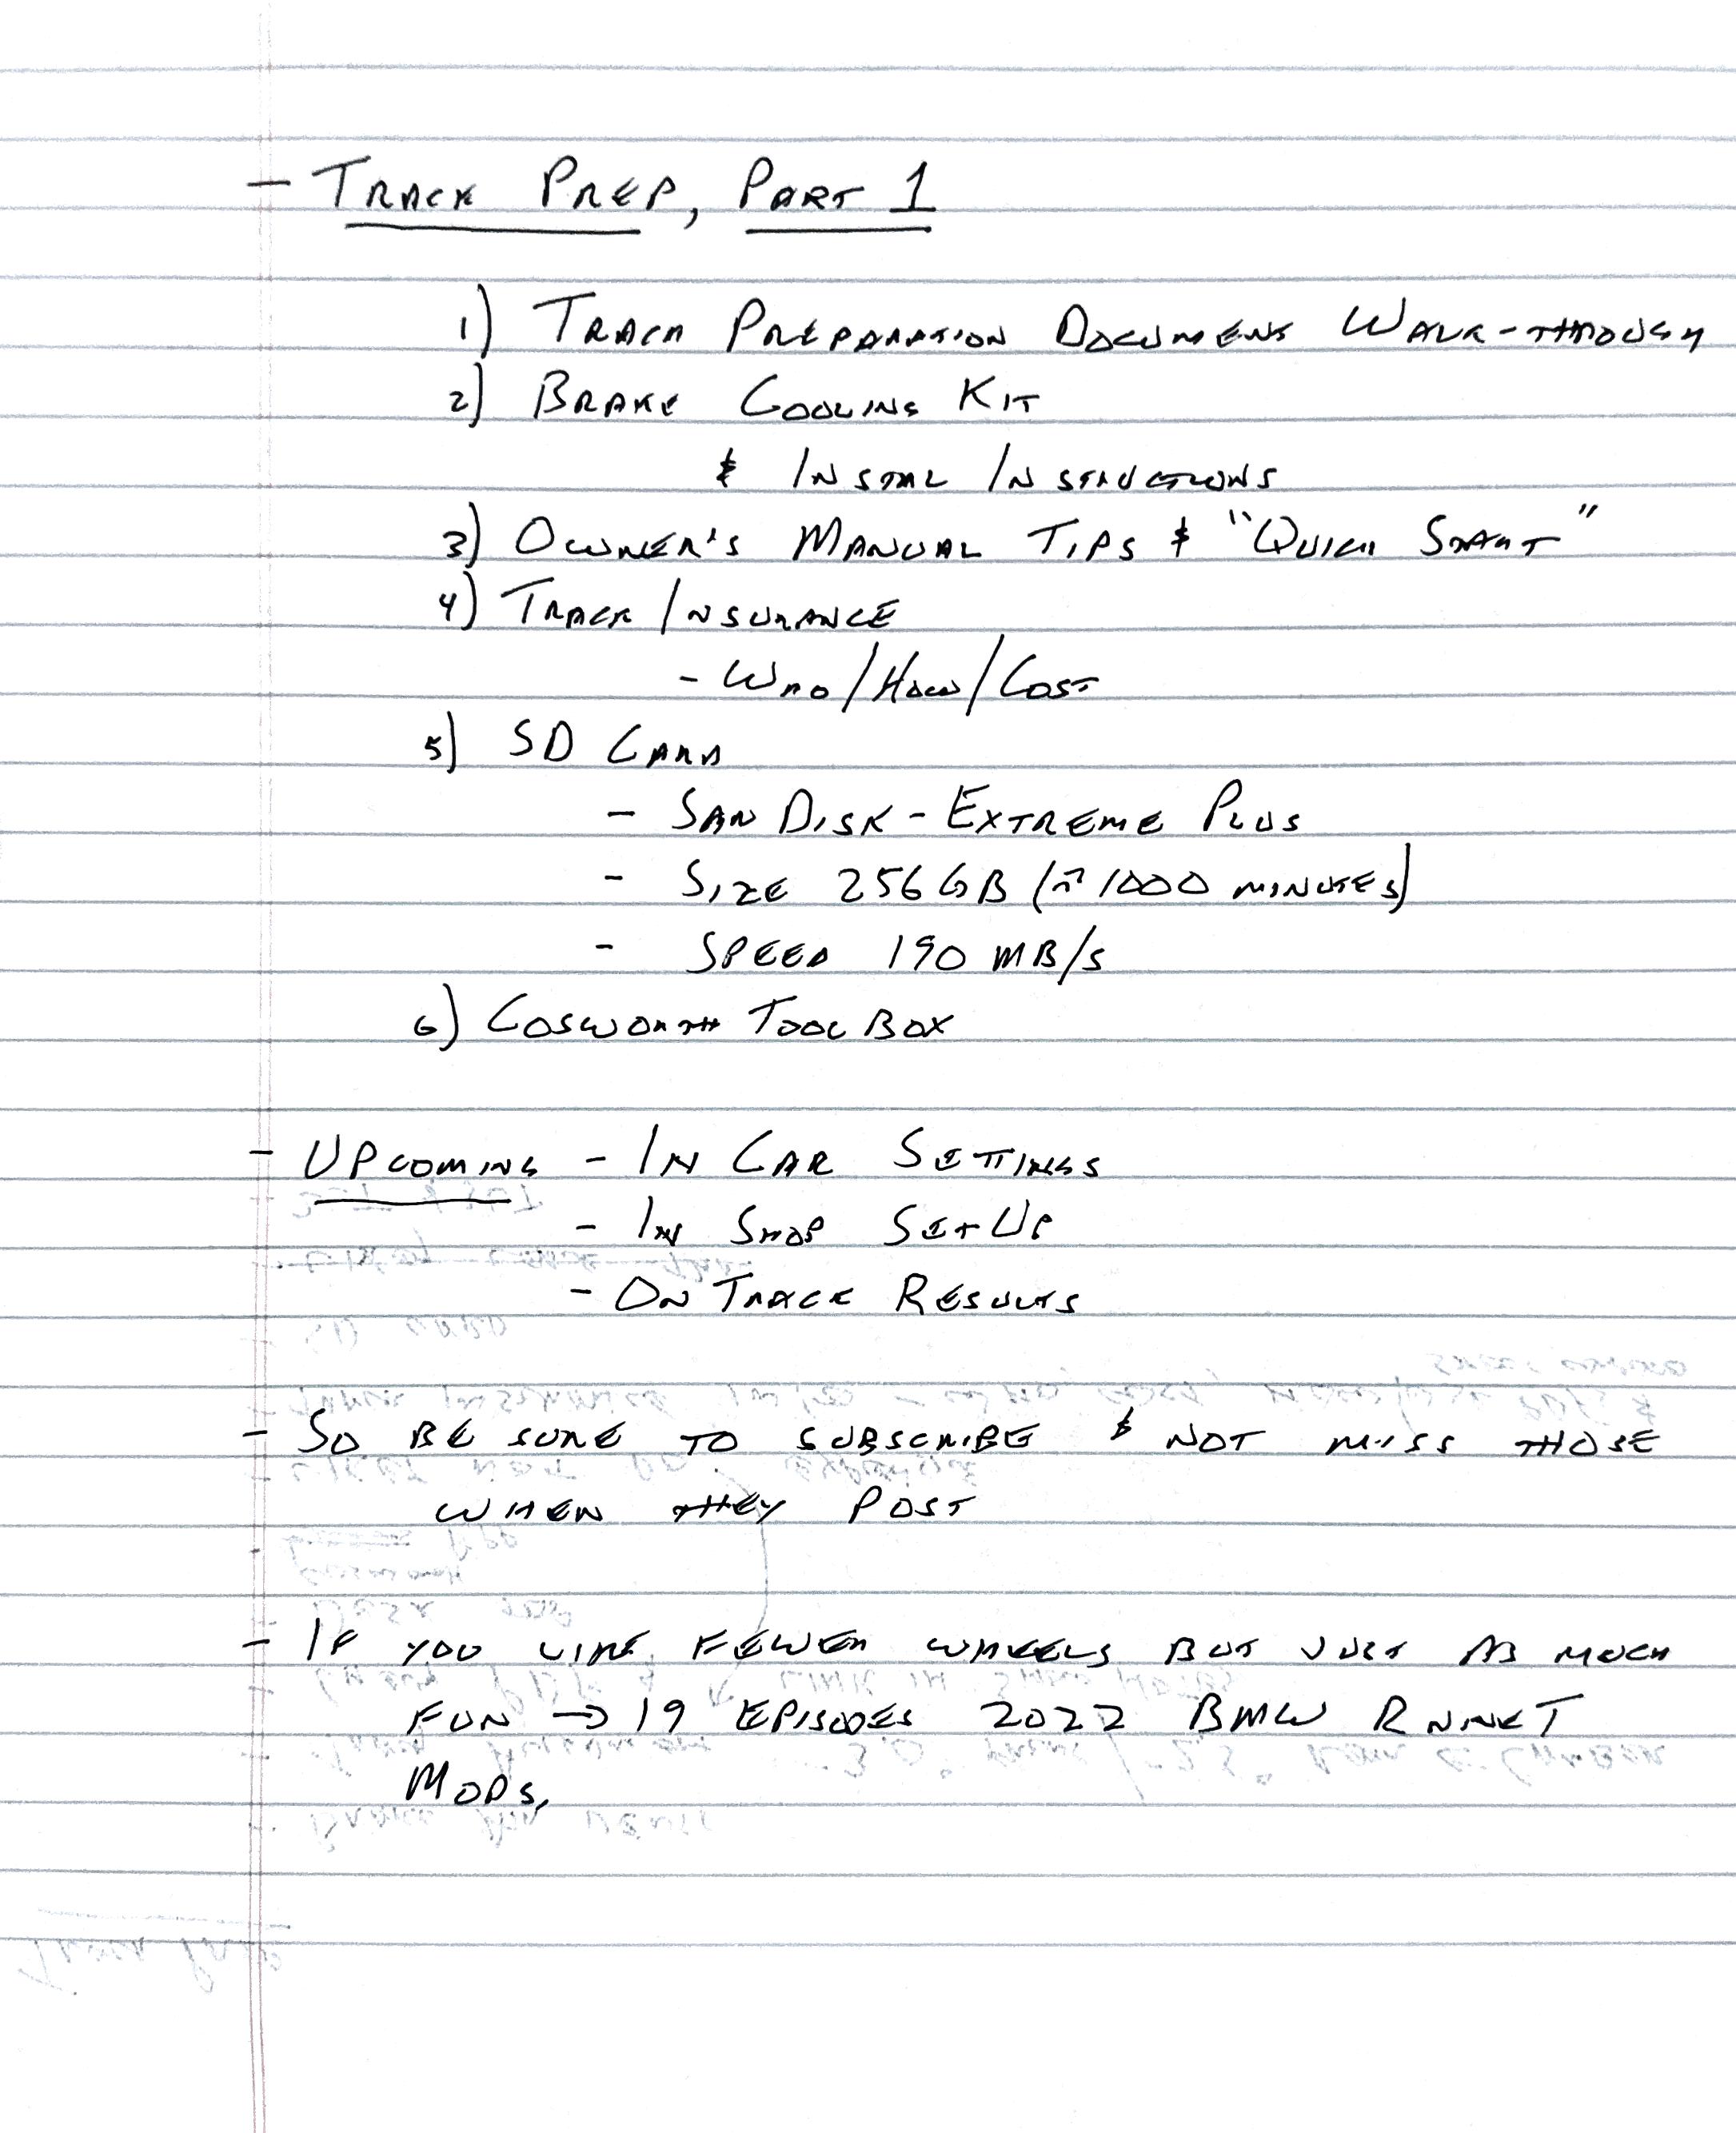 - Track Prep, Part 1
1) Track Preparation Document Walk-through
2) Brake Cooling Kit
& Instal Instructions
3) Owner's Manual Tips & "Quick Start"
4) Track Insurance
- Who/How/Cost
5) SD Card
- SanDisk - Extreme Plus
- Size 256 GB (≈ 1000 minutes)
- Speed 190 MB/s
6) Cosworth ToolBox
- Upcoming - In Car Settings
- In Shop Set Up
- On Track Results
- So be sure to subscribe & not miss those
when they post
- If you like fewer wheels but just as much
fun → 19 episodes 2022 BMW R NineT
Mods.